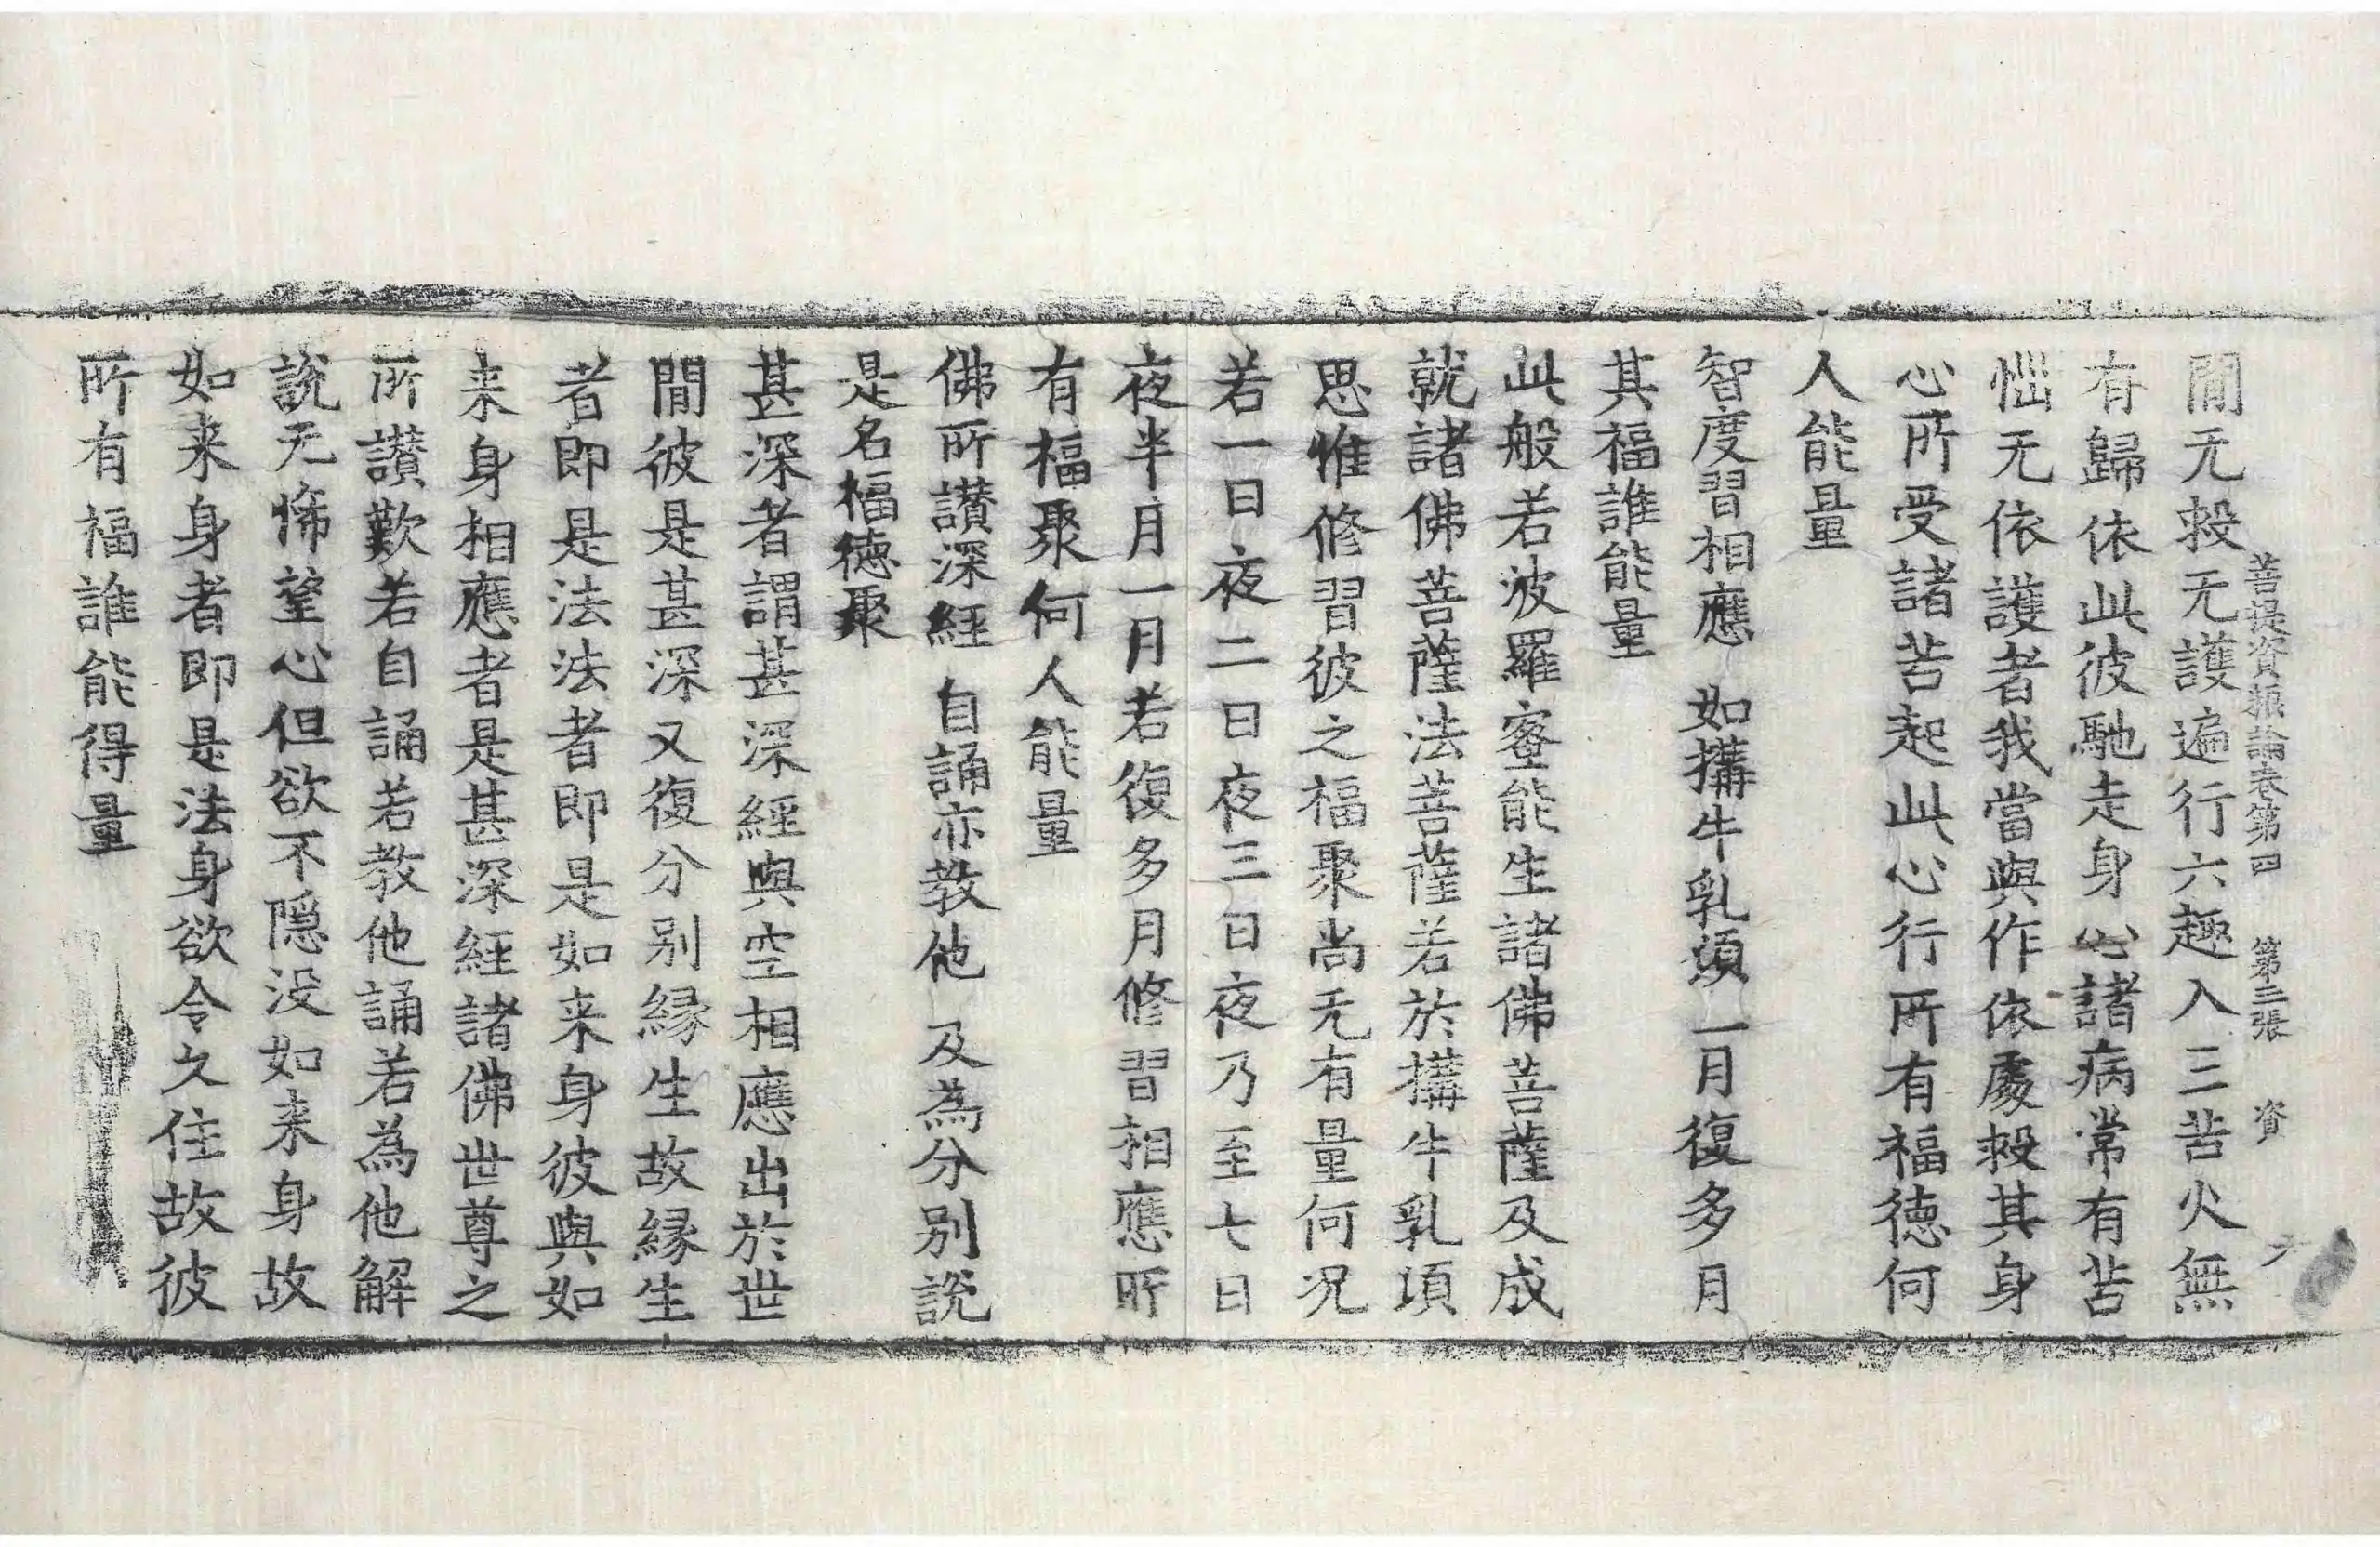 菩提資糧論卷第四 第三張 資
間无救无護遍行六趣入三苦火無
有歸依此彼馳走身心諸病常有苦
惱无依護者我當與作依處救其身
心所受諸苦起此心行所有福德何
人能量
智度習相應 如搆牛乳須 一月復多月
其福誰能量
此般若波羅蜜能生諸佛菩薩及成
就諸佛菩薩法菩薩若於搆牛乳項
思惟修習彼之福聚尚无有量何况
若一日夜二日夜三日夜乃至七日
夜半月一月若復多月修習相應所
有福聚何人能量
佛所讃深經 自誦亦教他 及為分别說
是名福德聚
甚深者謂甚深經與空相應出於世
間彼是甚深又復分别縁生故縁生
者即是法法者即是如来身彼與如
来身相應者是甚深經諸佛世尊之
所讃歎若自誦若教他誦若為他解
說无悕望心但欲不隠没如来身故
如来身者即是法身欲令久住故彼
所有福誰能得量